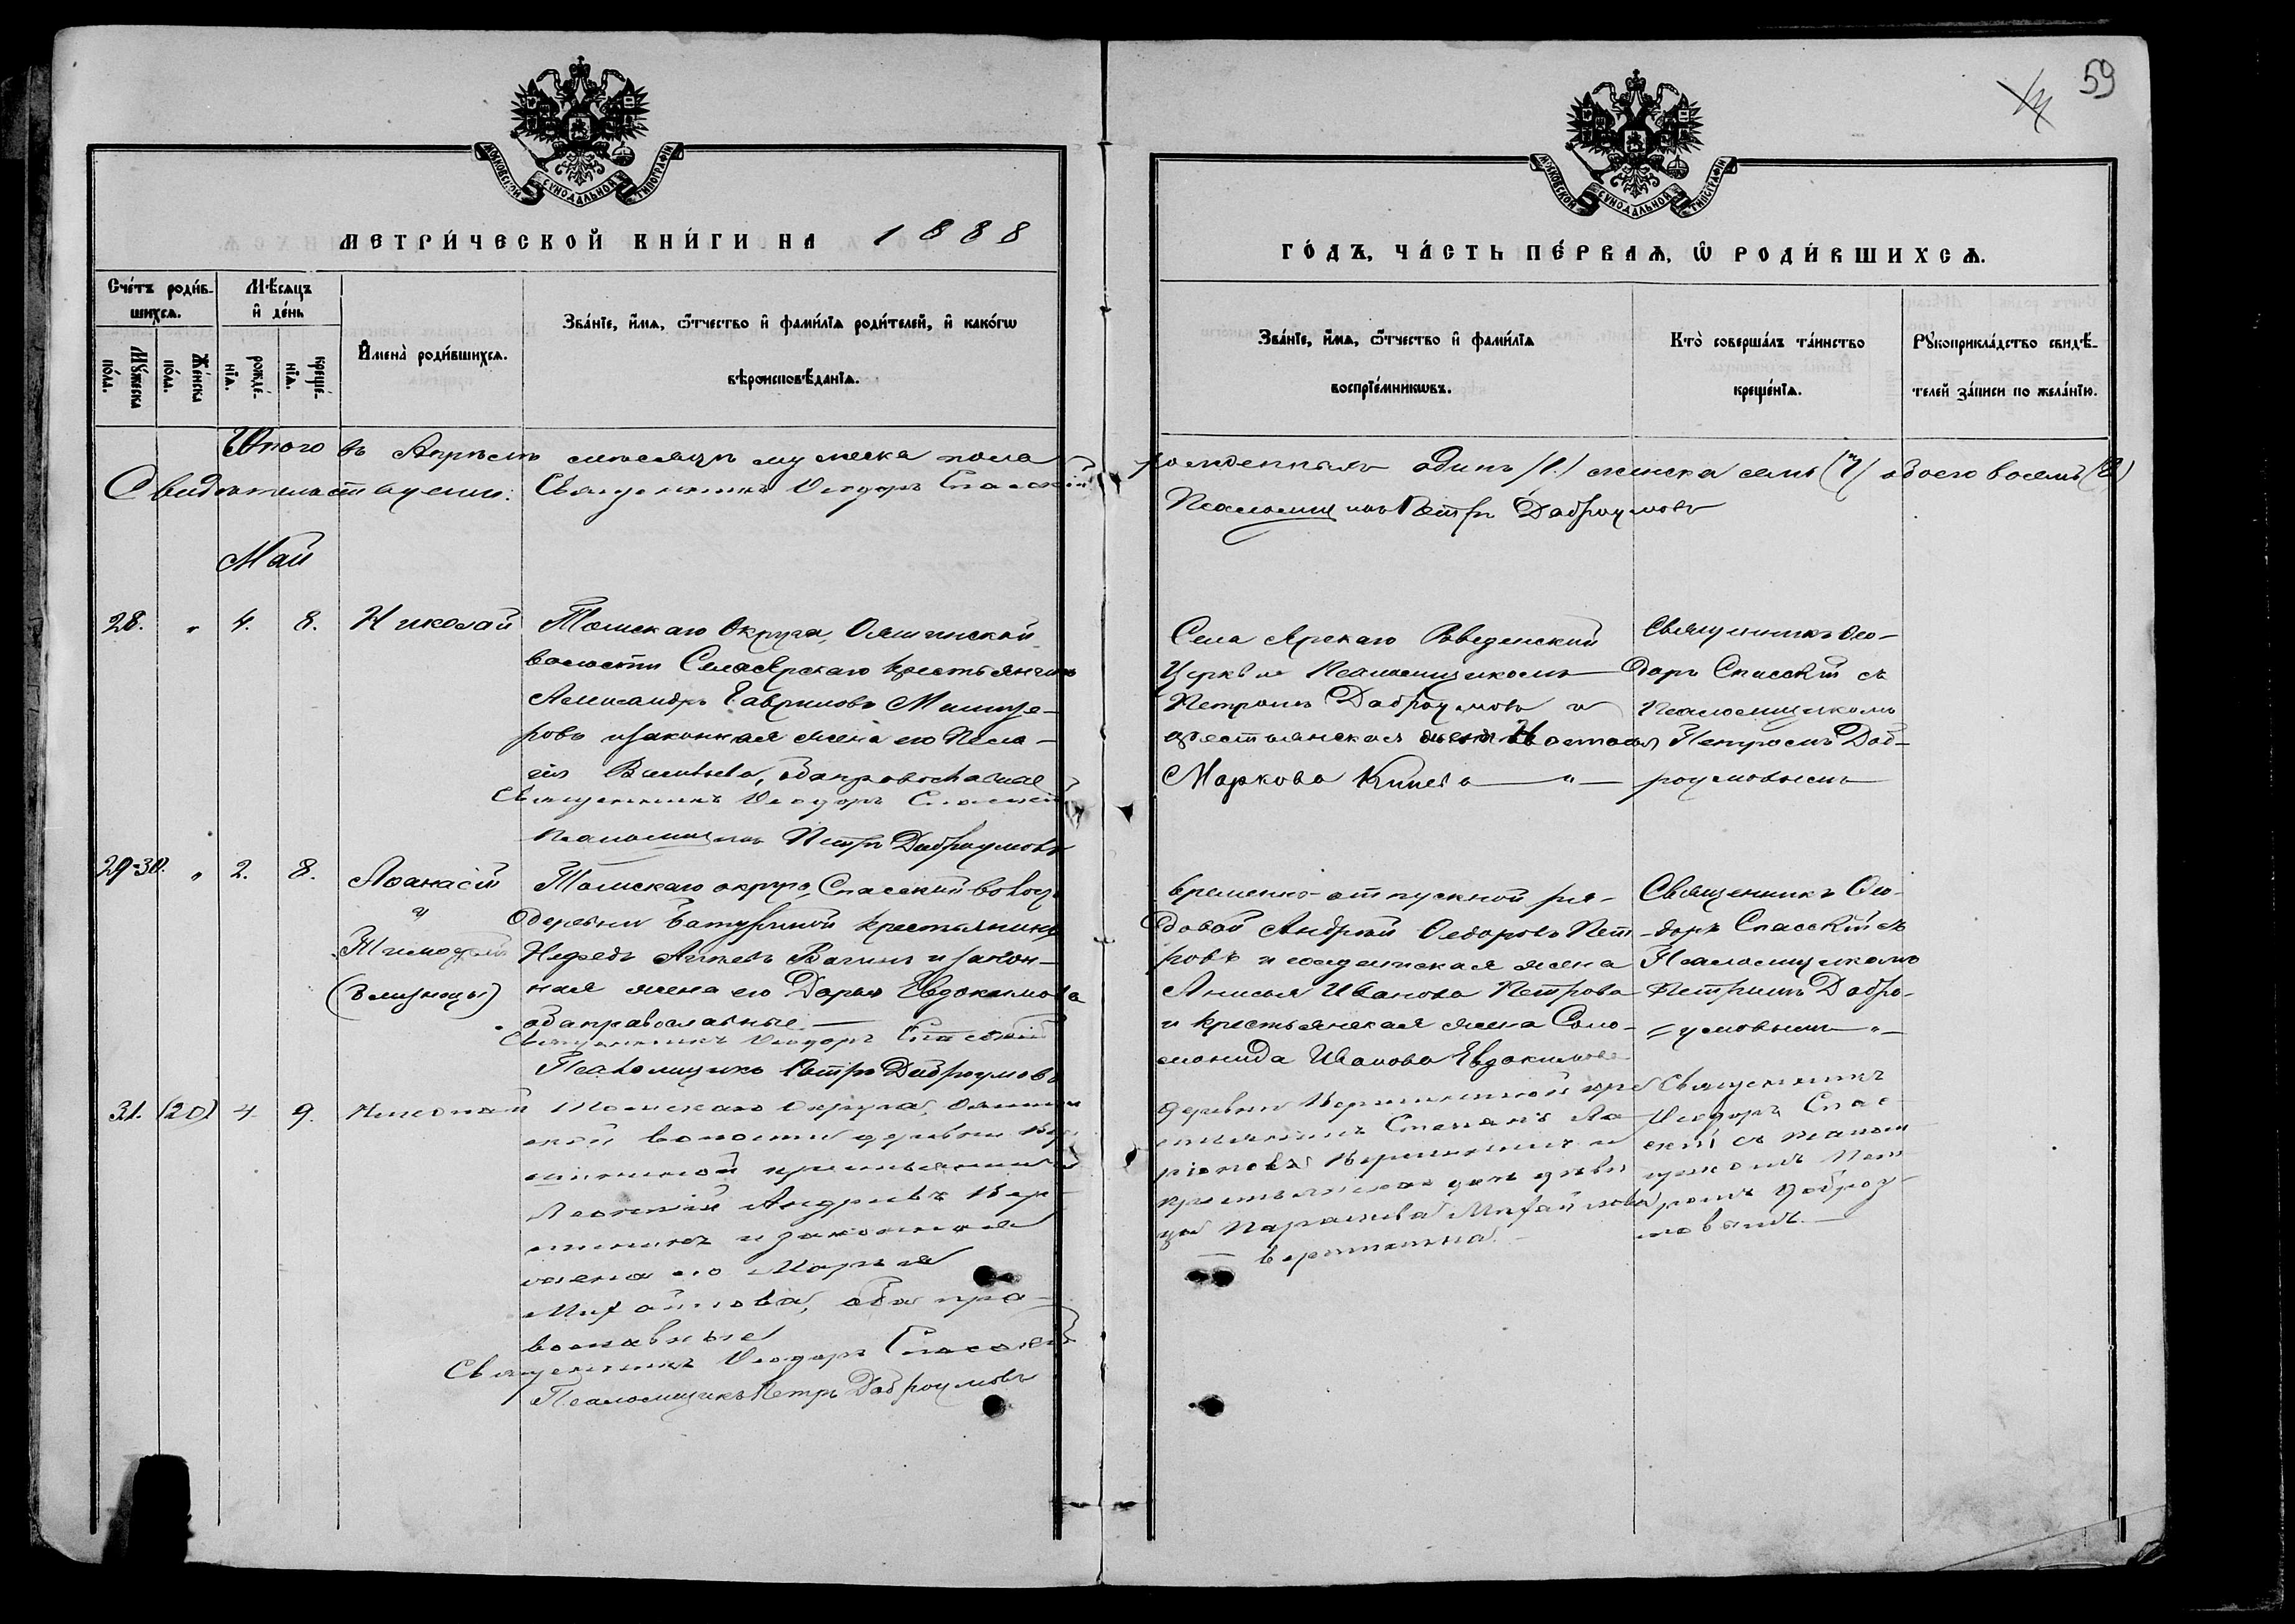 59
МОСКОВСКОЙ СѴНОДАЛЬНОЙ ТИПОГРАФІИ
МОСКОВСКОЙ СѴНОДАЛЬНОЙ ТИПОГРАФІИ
МЕТРИ́ЧЕСКОЙ КНИ́ГИ НА 1888
ГО́ДЪ, ЧА́СТЬ ПЕ́РВАѦ, Ѡ҆ РОДИ́ВШИХСѦ.
Сче́тъ роди́в-
шихсѧ.
Мꙋ́жеска
по́ла.
Же́нска
по́ла.
Мѣ́сѧцъ
и҆ де́нь
рожде́-
нїѧ.
креще́-
нїѧ.
И҆мена̀ роди́вшихсѧ.
Зва́нїе, и҆́мѧ, ѻ҆́тчество и҆ фами́лїѧ роди́телей, и҆ како́гѡ
вѣроисповѣ́данїѧ.
Зва́нїе, и҆́мѧ, ѻ҆́тчество и҆ фами́лїѧ
воспрїе́мникѡвъ.
Кто̀ соверша́лъ та́инство
креще́нїѧ.
Рꙋкоприкла́дство свидѣ́-
телей за́писи по жела́нїю.
Итого въ Апрѣлѣ мѣсяцѣ мужеска пола
рожденныхъ одинъ /1./ женска семь (7) обоего восемь (8)
Свидѣтельствуемъ: Священникъ Ѳеодоръ Спасскій
Псаломщикъ Петръ Доброумовъ
Май
28. " 4. 8. Николай
Томскаго Округа, Ояшинской
волости Села Ярскаго крестьянинъ
Александръ Гавриловъ
ровъ и законная жена его Пела-
гія Васильева, оба православные
Священникъ Ѳеодоръ Спасскій
Псаломщикъ Петръ Доброумовъ
Села Ярскаго Введенской
Церкви Псаломщикомъ
Петромъ Доброумовъ и
крестьянская
Маркова "
Священникъ Ѳео-
доръ Спасскій съ
Псаломщикомъ
Петромъ Доб-
роумовымъ
29-30. " 2. 8. Аѳанасій
и
Тимоѳей
(близнецы)
Томскаго округа, Спасской волос.
деревни Батуриной крестьянинъ
и закон-
ная жена его Дарья Евдокимова
оба православные
Священникъ Ѳеодоръ Спасскій
Псаломщикъ Петръ Доброумовъ
Временно-отпускной ря-
довой Андрей Ѳедоровъ Пет-
ровъ и солдатская жена
Анисья Иванова Петрова
и Крестьянская жена Соло-
монида Иванова Евдокимова
Священникъ Ѳео-
доръ Спасскій съ
Псаломщикомъ
Петромъ Добро-
умовымъ
31. (20) 4. 9. Николай
Томскаго Округа, Ояшин
ской волости деревни Вер
шининой крестьянинъ
Леонтій Андреевъ Вер-
шининъ и законная
жена его Марья
Михайлова, оба пра-
вославные
Священникъ Ѳеодоръ Спасскій
Псаломщикъ Петръ Доброумовъ
деревни Вершининой кре
стьянинъ Степанъ Ла
ріоновъ Вершининъ и
крестьянская дочь дѣви
ца Параскева Михайлова
Вершинина.
Священникъ
Ѳеодоръ Спас-
скій съ псалом
щикомъ Пет
ромъ Доброу-
мовымъ.